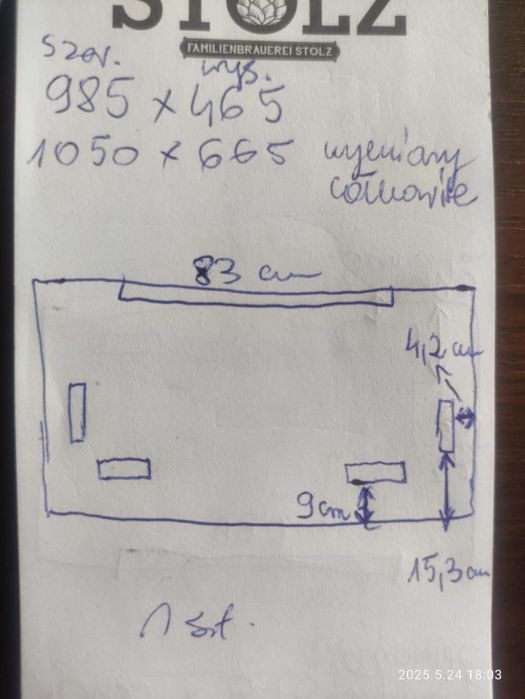 STOLZ
FAMILIENBRAUEREI STOLZ
Szer. wys.
985 x 465
1050 x 665 wymiary
całkowite
83 cm
4,2 cm
9cm
15,3cm
1 szt.
2025.5.24 18:03